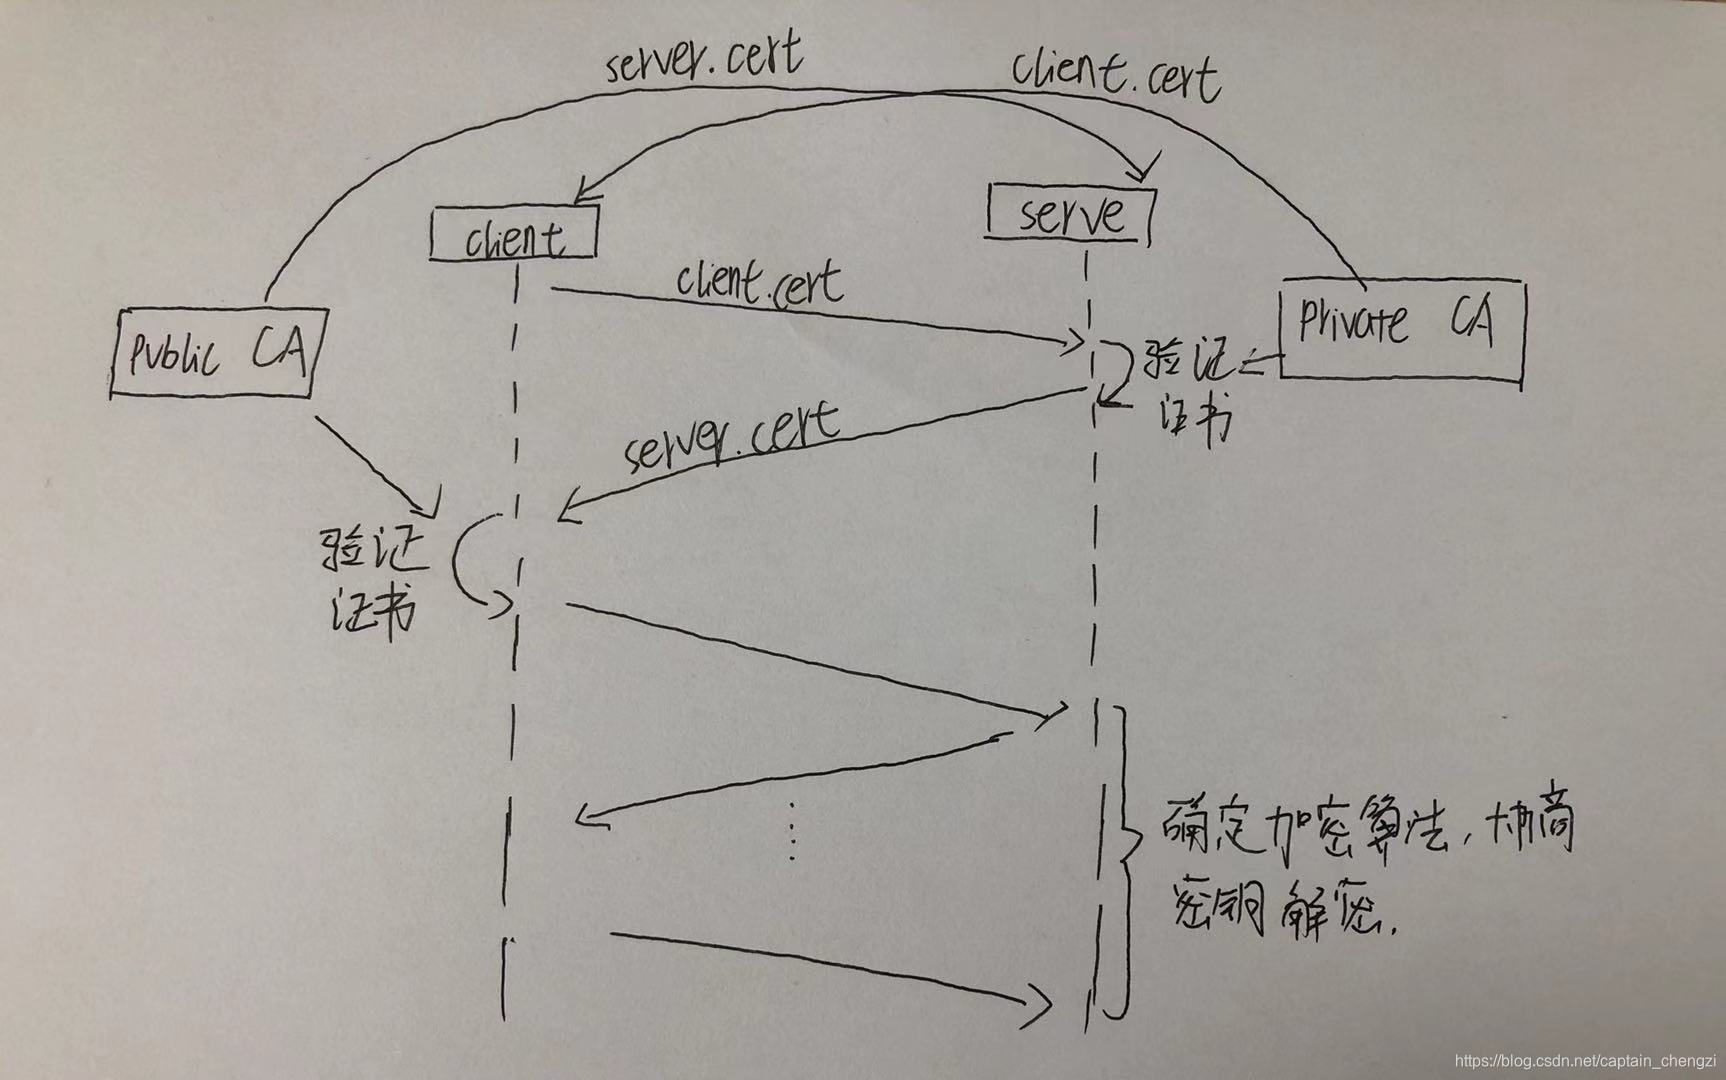 server.cert
client.cert
client
serve
client.cert
public CA
private CA
验证
证书
server.cert
验证
证书
确定加密算法，协商
密钥解密.
https://blog.csdn.net/captain_chengzi